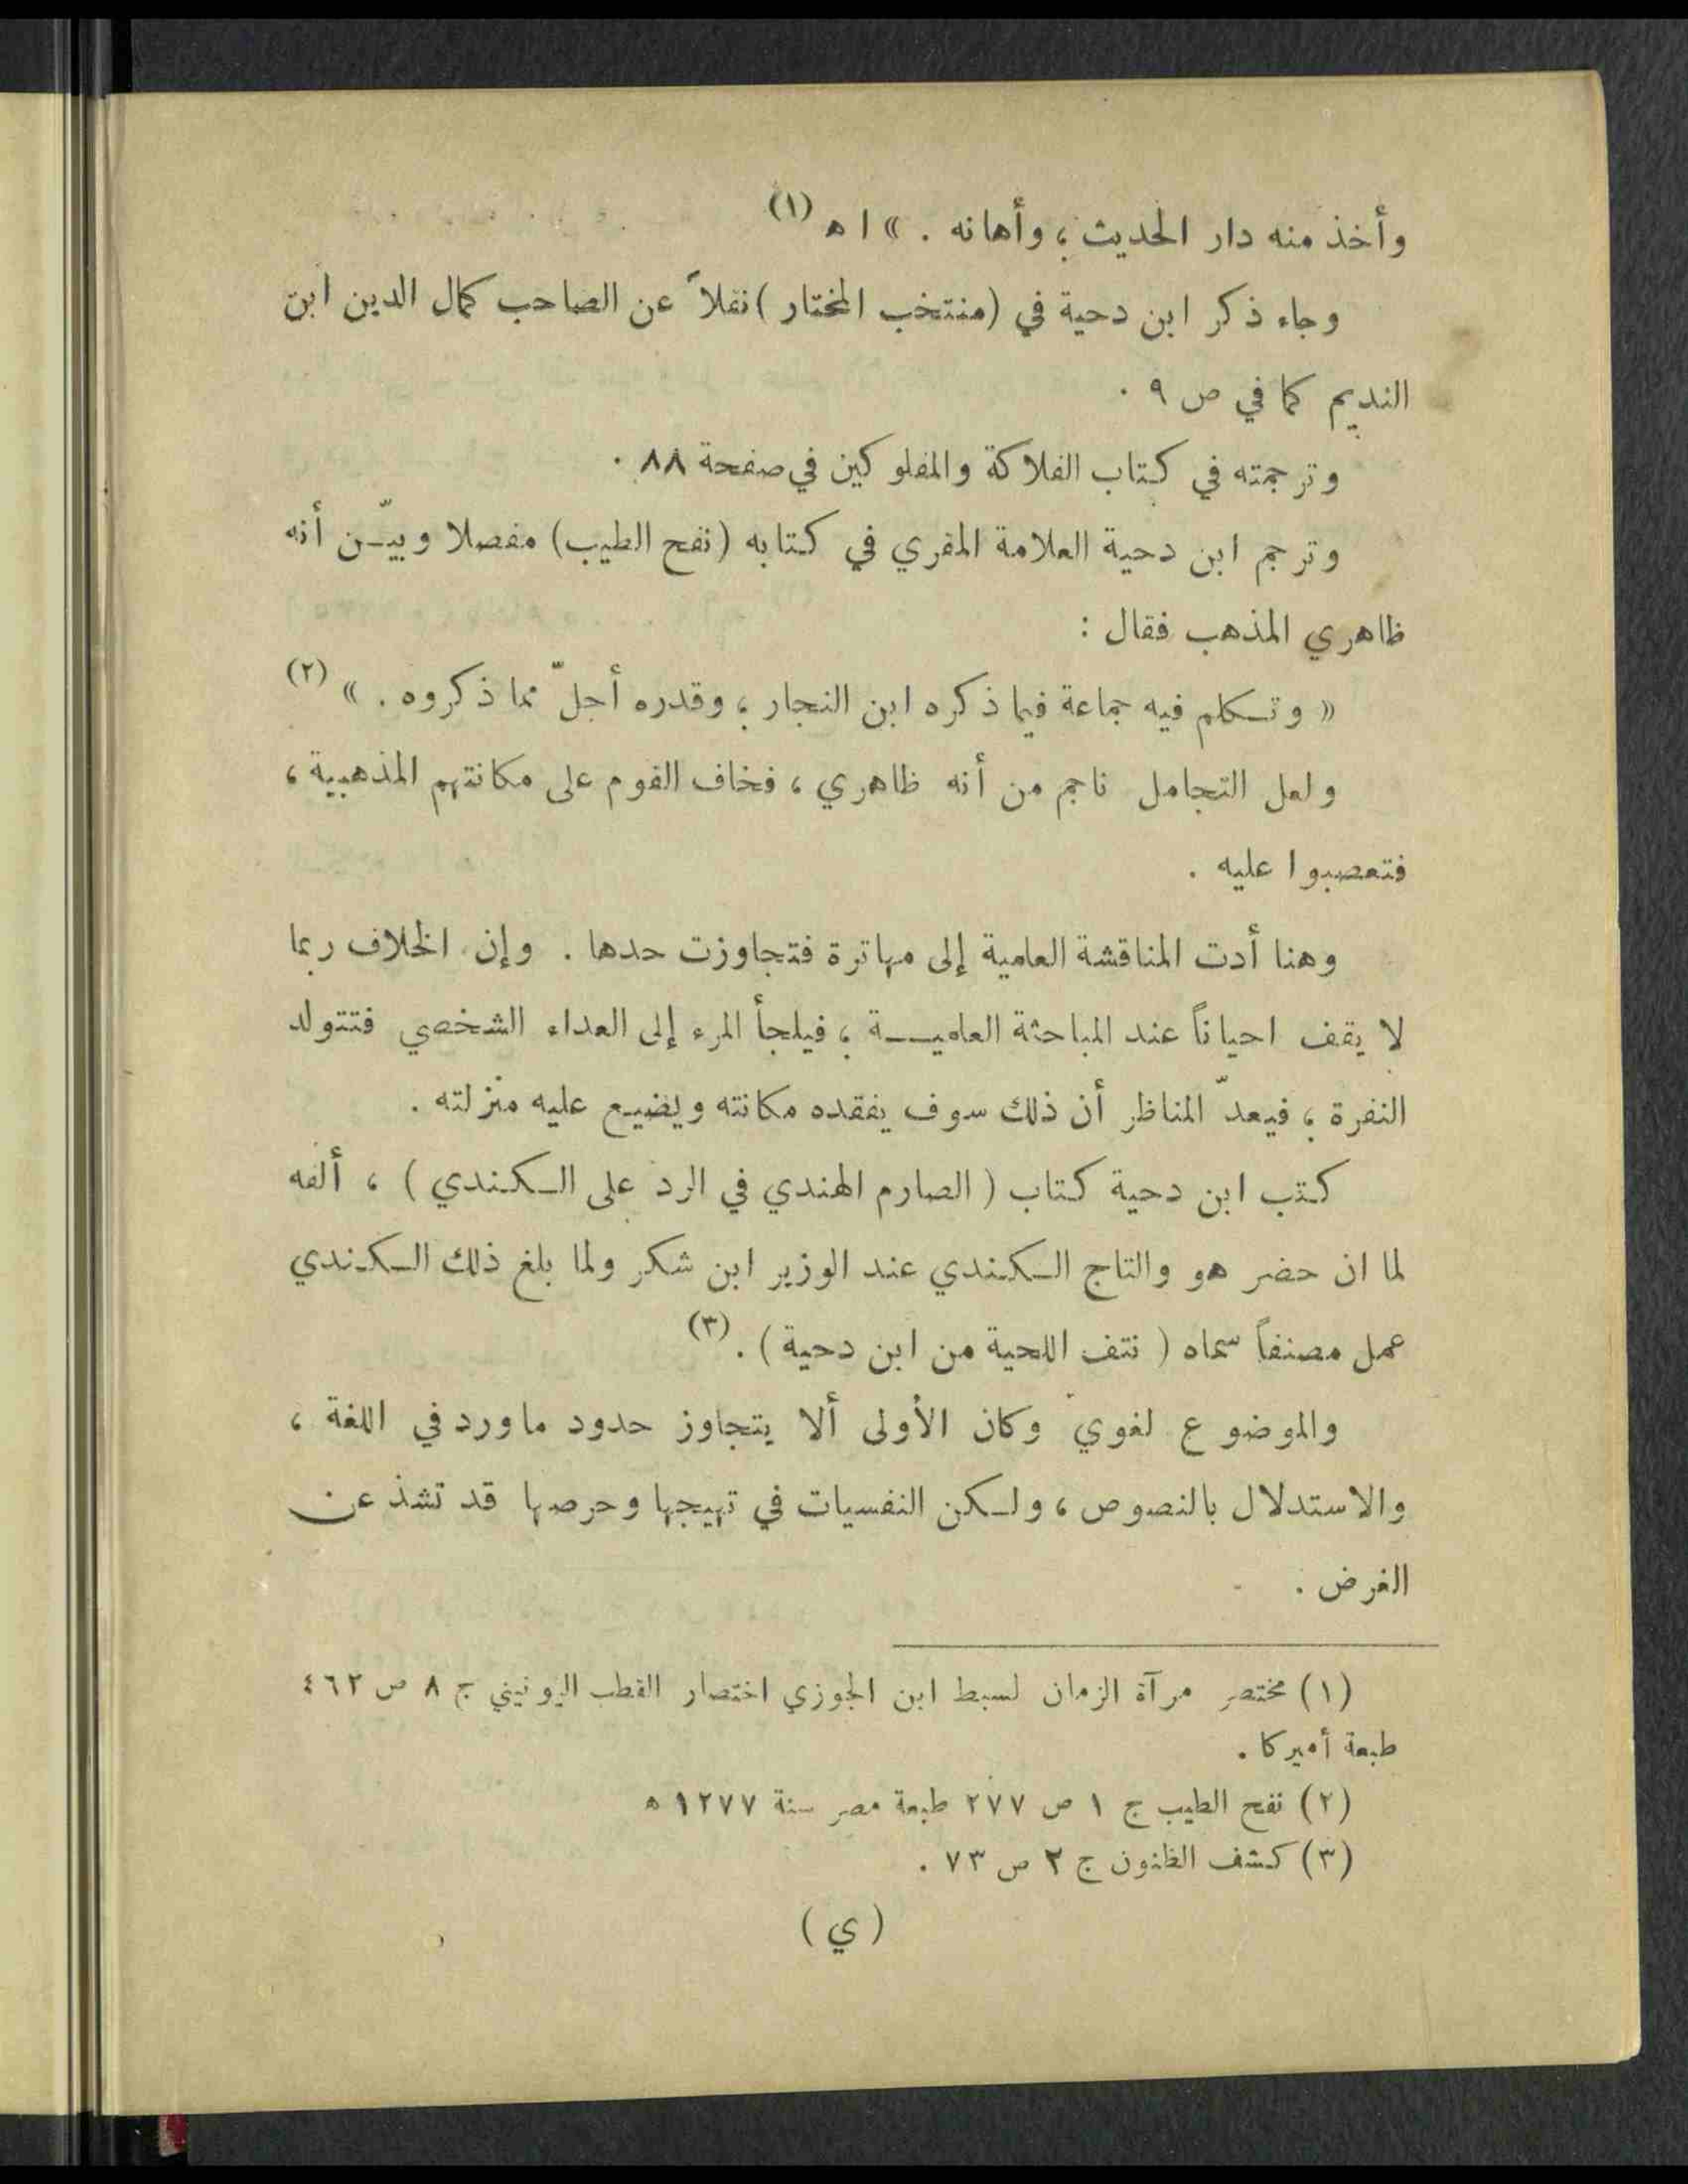 وأخذ منه دار الحديث ، وأهانه . » ا ه (١)
وجاء ذكر ابن دحية في (منتخب المختار) نقلاً عن الصاحب كمال الدين ابن
النديم كما في ص ٩ .
وترجمته في كتاب الفلاكة والمفلوكين في صفحة ٨٨ .
وترجم ابن دحية العلامة المقري في كتابه (نفح الطيب) مفصلا وبيّن أنه
ظاهري المذهب فقال :
« وتكلم فيه جماعة فيما ذكره ابن النجار ، وقدره أجلّ مما ذكروه . » (٢)
ولعل التحامل ناجم من أنه ظاهري ، فخاف القوم على مكانتهم المذهبية ،
فتعصبوا عليه .
وهنا أدت المناقشة العلمية إلى مهاترة فتجاوزت حدها . وإن الخلاف ربما
لا يقف احياناً عند المباحثة العلمية ، فيلجأ المرء إلى العداء الشخصي فتتولد
النفرة ، فيعدّ المناظر أن ذلك سوف يفقده مكانته ويضيع عليه منزلته .
كتب ابن دحية كتاب ( الصارم الهندي في الرد على الكندي ) ، ألفه
لما ان حضر هو والتاج الكندي عند الوزير ابن شكر ولما بلغ ذلك الكندي
عمل مصنفاً سماه ( نتف اللحية من ابن دحية ) . (٣)
والموضوع لغوي وكان الأولى ألا يتجاوز حدود ماورد في اللغة ،
والاستدلال بالنصوص ، ولكن النفسيات في تهيجها وحرصها قد تشذ عن
الغرض .
(١) مختصر مرآة الزمان لسبط ابن الجوزي اختصار القطب اليونيني ج ٨ ص ٤٦٢
طبعة أميركا .
(٢) نفح الطيب ج ١ ص ٢٧٧ طبعة مصر سنة ١٢٧٧ ه
(٣) كشف الظنون ج ٢ ص ٧٣ .
( ي )